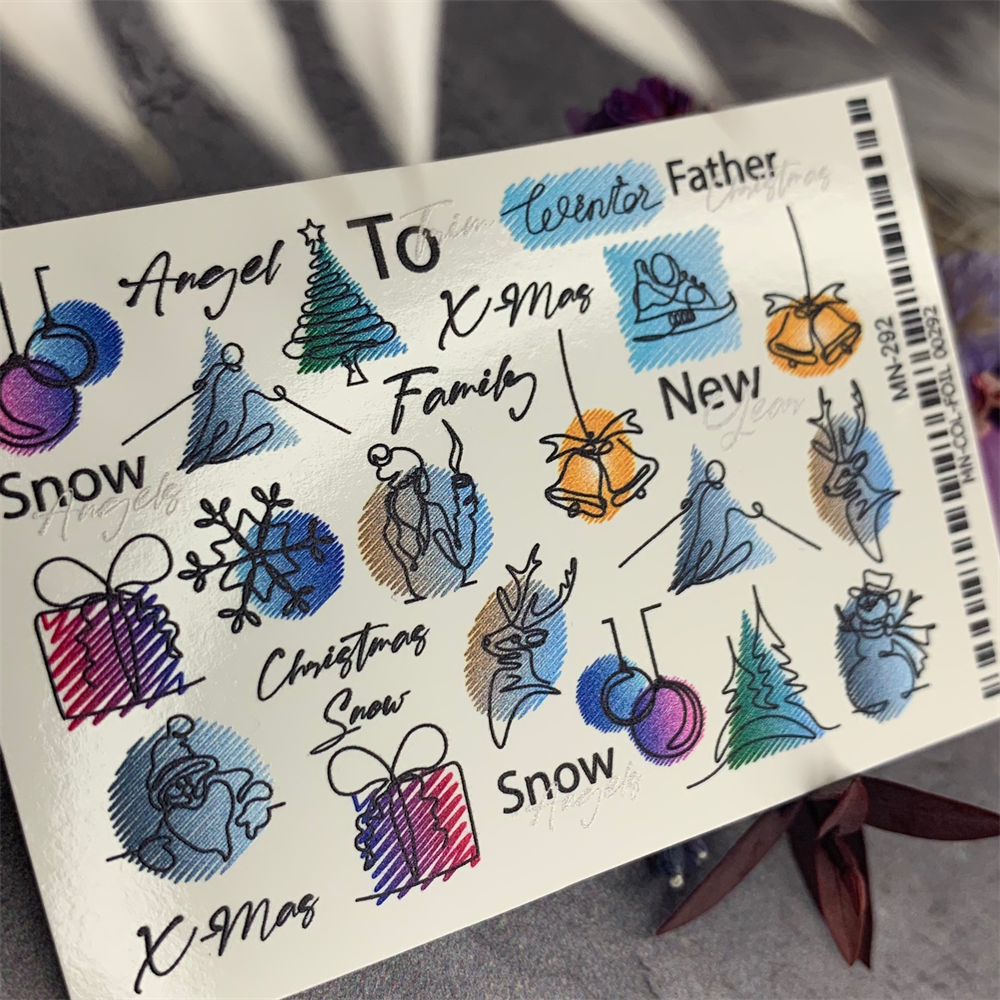 Father
Christmas
Winter
To
Trim
Angel
X-Mas
Family
New
Year
Snow
Angels
Christmas
Snow
Snow
Angels
X-Mas
MN-292
MN-COL-FOIL 00292